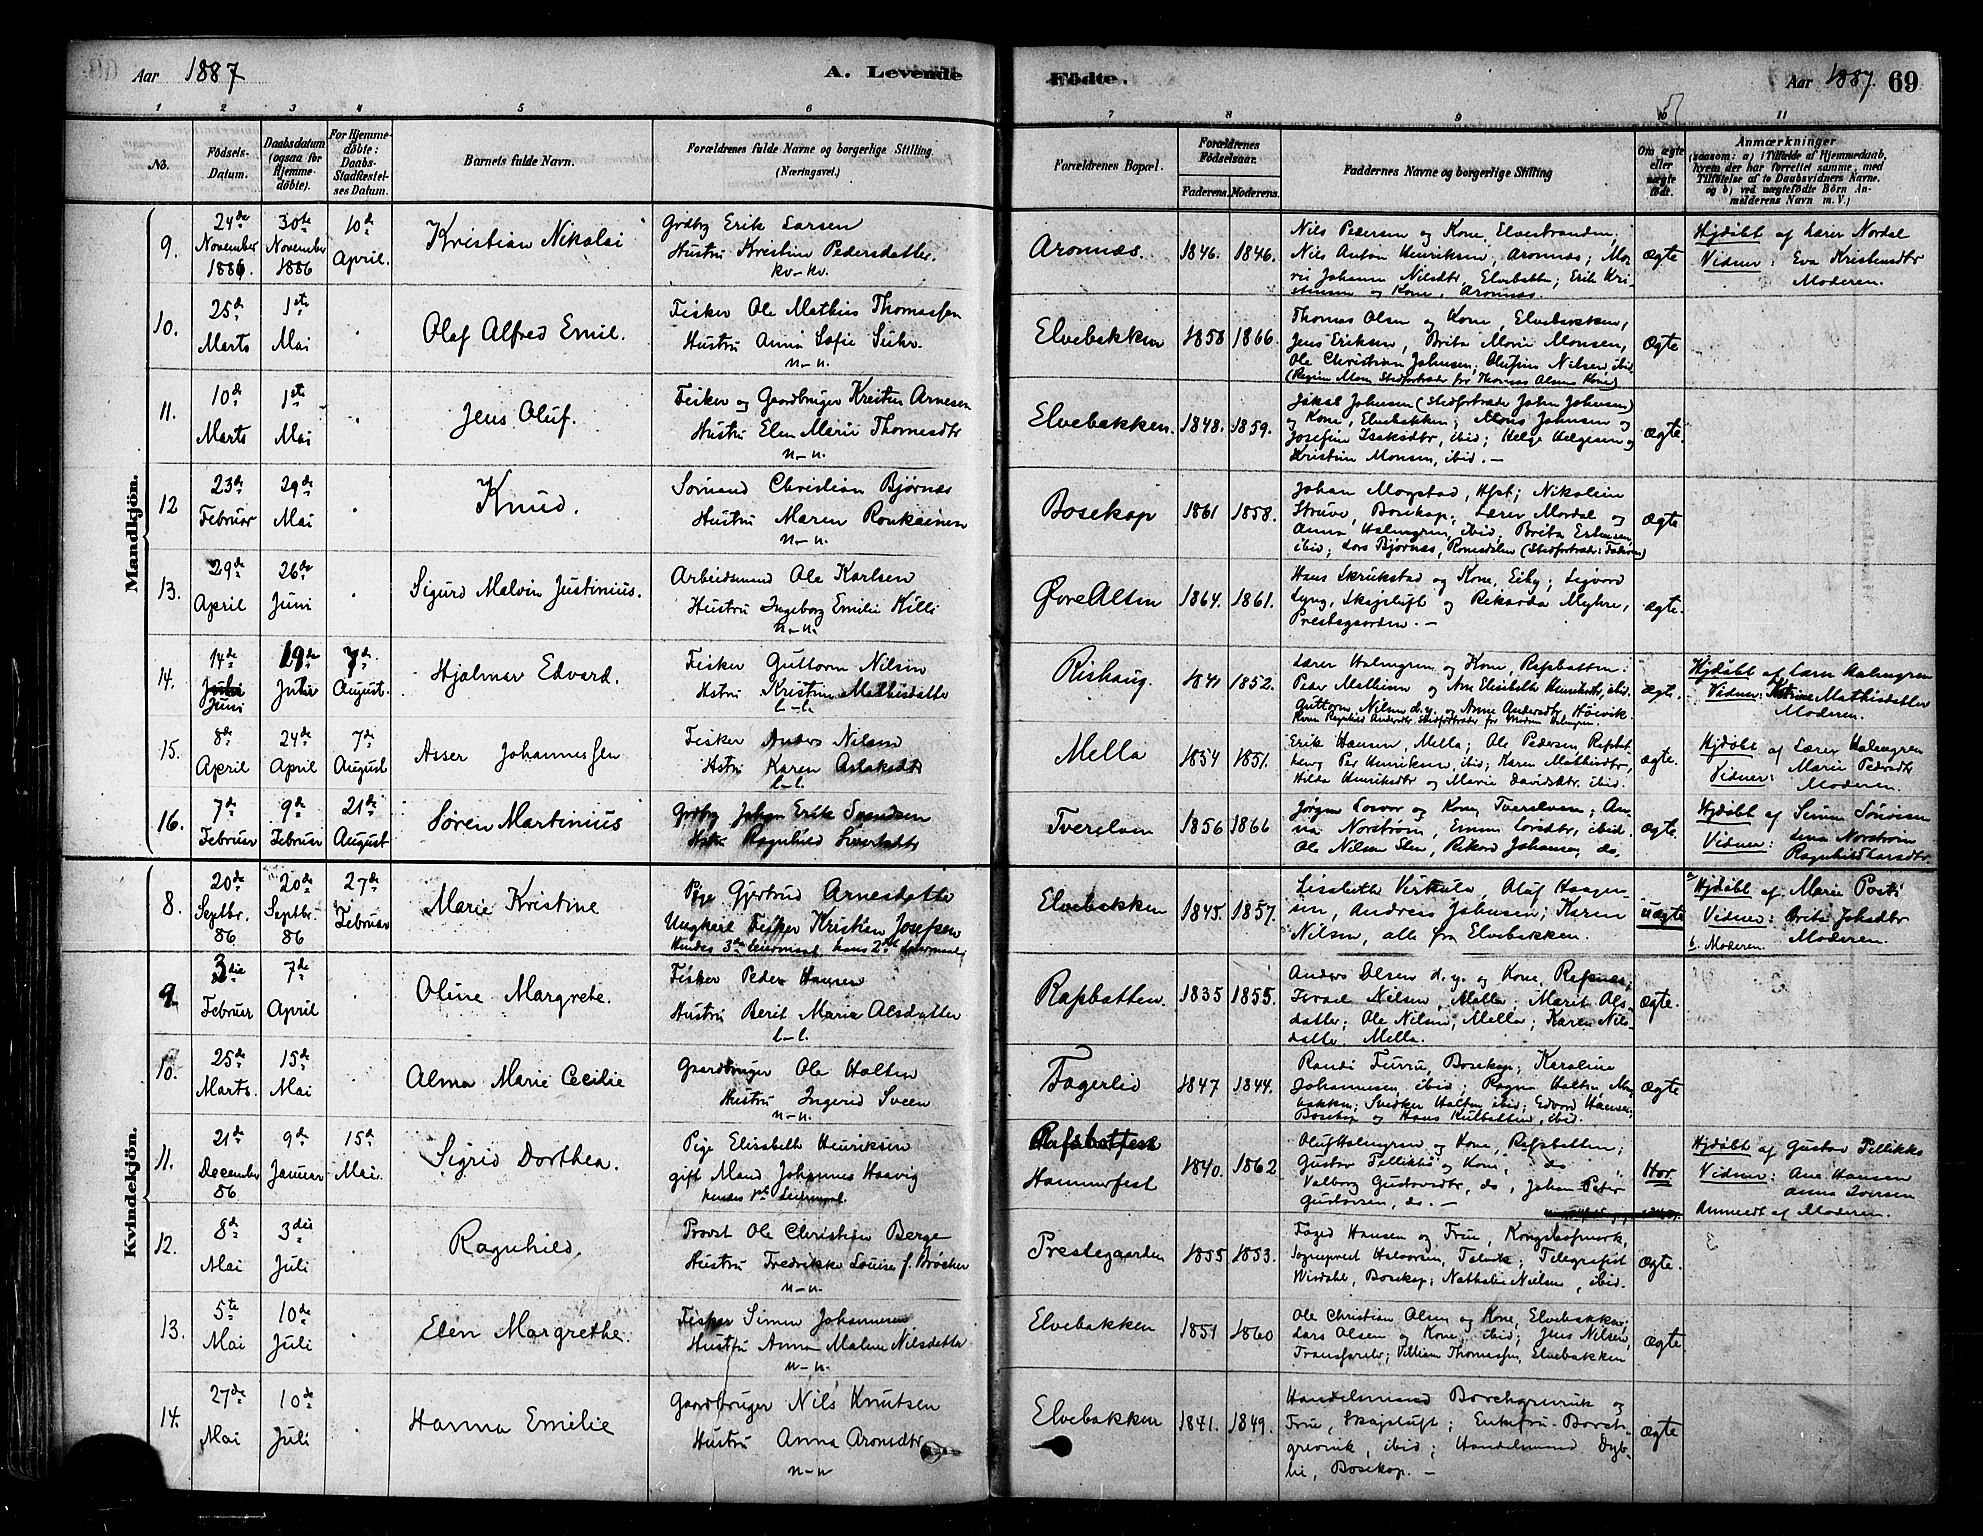 Aar 1887
A. Levende
Fødte.
Aar 1887. 69
1 2 3 4 5 6 7 8 9 10 11
No.
Fødsels-Datum.
Daabsdatum (ogsaa for Hjemmedøbte).
For Hjemmedøbte: Daabs-Stadfæstelses Datum.
Barnets fulde Navn.
Forældrenes fulde Navne og borgerlige Stilling.
(Næringsvei.)
Forældrenes Bopæl.
Forældrenes Fødselsaar.
Faderens. Moderens.
Faddernes Navne og borgerlige Stilling
Om ægte eller uægte født.
Anmærkninger
(saasom: a) i Tilfælde af Hjemmedaab, hvem der har forrettet samme, med Tilføielse af to Daabsvidners Navne. og b) ved uægtefødte Børn Anmelderens Navn m. V.)
Mandkjön.
9. 24de November 1886. 30te November 1886 10de April. Kristian Nikolai
Grdbr Erik Larsen
Hustru Kristine Pedersdatter.
kv-kv.
Aronnæs. 1846. 1846.
Nils Pedersen og Kone, Elvestranden;
Nils Anton Henriksen, Aronnæs; Marie Johanne Nilsdtr, Elvebakken; Erik Kristensen og Kone, Aronnæs.
ægte
Hjdöbt af Lærer Nordal
Vidner: Eva Kristensdtr
Moderen.
10. 25de Marts 1ste Mai . Olaf Alfred Emil.
Fisker Ole Mathis Thomassen
Hustru Anna Sofie Suhr.
n-n.
Elvebakken 1858 1866.
Thomas Olsen og Kone, Elvebakken,
Jens Eriksen, Brita Marie Monsen,
Ole Christian Johnsen; Olufine Nilsen, ibid
(Regine Mons Stedfortræder for Thomas Olsens Kone)
Ægte
11. 10de Marts 1ste Mai . Jens Oluf.
Fisker og Gaardbruger Kristen Arnesen
Hustru Elen Marie Thomasdtr
n-n.
Elvebakken. 1848. 1859.
Jakob Johnsen (Stedfortræder John Johnsen)
og Kone, Elvebakken; Mons Johnsen og
Josefine Isaksdtr, ibid; Helge Helgesen og
Kristine Monsen, ibid. -
ægte.
12 23de Februar 29de Mai . Knud.
Sömand Christian Björnæs
Hustru Maren Ronkainen
n-n.
Bosekop 1861 1858.
Johan Mogstad, Hfst; Nikoline
Struve, Bosekop; Lærer Mordal og
Anna Halmgren, ibid; Brita Estensen
ibid; Lars Bjørnæs, Romsdalen (Stedfortræder: Faderen)
ægte
13. 29de April 26de Juni . Sigurd Malvin Justinius.
Arbeidsmand Ole Karlsen
Hustru Ingeborg Emilie Killi
n-n.
Øvre Alten 1864. 1861.
Hans Skrukstad og Kone, Eiby; Sigvard
Lyng, Skajsluft og Rikarda Myhre,
Prestegaarden. -
ægte.
14. 14de Juni 19de Juli 7de August. Hjalmar Edvard.
Fisker Guttorm Nilsen
Hstru Kristine Mathisdatter
l-l.
Rishaug. 1841 1852.
Lærer Halmgren og Kone, Rafsbotten;
Peder Mathisen og Ane Elisabeth Henriksdtr, ibid.
Guttorm Nilsen d.y. og Anne Andersdtr Höivik.
ægte.
Hjdöbt af Lærer Halmgren
Vidner: Katrine Mathisdatter
Moderen.
15. 8de April 24de April 7de August Asser Johannessen
Fisker Anders Nilsen
Hstru Karen Aslaksdtr
l-l.
Mella 1854 1851.
Erik Hansen, Mella; Ole Pedersen, Rafsbotten; Per Henriksen, ibid; Karen Mathisdtr,
Hilda Henriksdtr og Marie Davidsdtr. ibid.
ægte.
Hjdöbt af Lærer Halmgren
Vidner: Marie Pedersdtr
Moderen.
16. 7de Februar 9de Februar 21de August Søren Martinius
Grdbr Johan Erik Svendsen
Hstru Ragnhild
Tverelven 1856 1866
Jörgen Losvar og Kone, Tverelven; Anna Norström, Emma Larsdtr, ibid.
Ole Nilsen Sten, Rikard Johansen, do.
ægte.
Hjdöbt af Simon Simonsen
Vidner: Lena Norström
Ragnhild Larsdtr
Kvindekjön.
8. 20de Septbr. 86 20de Septbr. 86 27de Februar Marie Kristine
Pige Gjertrud Arnesdatter
Ungkarl Fisker Kristian Josefsen
Hendes 3die Leiermaal, hans 2det Leiermaal
Elvebakken 1845. 1857.
Lisabeth Virkula, Oluf Haagensen, Andreas Johnsen; Karen
Nilsen, alle fra Elvebakken.
uægte
a. Hjdöbt af Marie Posti
Vidner: Brita Johsdtr
Moderen
b. Moderen.
9. 3die Februar 7de April . Oline Margrete.
Fisker Peder Hansen
Hustru Berit Maria Alsdatter
l-l.
Rafsbotten. 1835 1855.
Anders Olsen d.y. og Kone, Rafsnes;
Israel Nilsen, Mella; Marit Alsdatter; Ole Nilsen, Mella; Karen Nilsdatter, Mella.
ægte.
10. 25de Marts. 15de Mai . Alma Marie Cecilie
Gaardbruger Ole Halten
Hustru Ingerid Sveen
n-n.
Fagerlid 1847 1844.
Randi Furru, Bosekop; Karoline
Johannesen, ibid; Ragna Halten
Halten ibid; Edvard Hansen,
Bosekop og Hans Kulbotten, ibid.
ægte
11. 21de December 86 9de Januar 15de Mai. Sigrid Dorthea.
Pige Elisabeth Henriksen
gift Mand Johannes Haavig
hendes 1ste Leiermaal
Rafsbotten
Hammerfest 1840. 1862
Oluf Halmgren og Kone, Rafsbotten;
Gustav Pellikka og Kone, do
Valborg Gustavsdtr, do, Johan Peter
Gustavsen, do. -
Hor
Hjdöbt af Gustav Pellikka
Vidner: Ane Hansen
Anna Iversen
Anmeldt af Moderen.
12. 8de Mai 3die Juli . Ragnhild.
Provst Ole Christian Berge
Hustru Fredrikke Louise f. Bröcker
n-n.
Prestegaarden 1855 1853.
Foged Hansen og Frue, Kongshofmark,
Sogneprest Halvorsen, Talvik; Telegrafist
Wirdahl, Bosekop; Nathalie Nielsen, ibid.
Ægte.
13. 5te Mai 10de Juli . Elen Margrethe.
Fisker Simon Johannesen
Hustru Anna Malene Nilsdatter
n-n.
Elvebakken 1851 1860
Ole Christian Olsen og Kone, Elvebakken;
Lars Olsen og Kone, ibid; Jens Nilsen,
Transfarelv; Villiam Thomassen, Elvebakken
ægte
14. 27de Mai 10de Juli . Hanna Emilie
Gaardbruger Nils Knutsen
Hustru Anna Aronsdtr
n-n
Elvebakken 1841. 1849.
Handelsmand Borchgrevink og
Frue, Skajsluft; Enkefru Borchgrevink, ibid; Handelsmand Dyblie, Bosekop. -
ægte